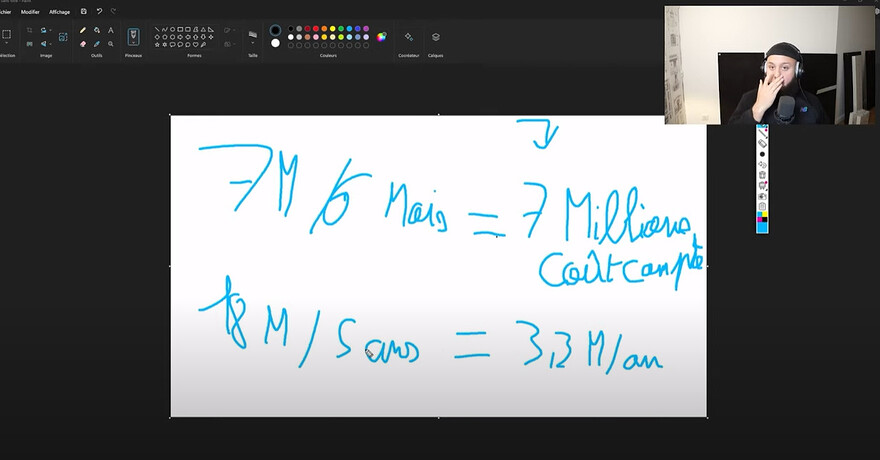 Fichier Modifier Affichage
Sélection Image Outils Pinceaux Formes Taille Couleurs Cocréateur Calques
7M / 6 Mois = 7 Millions
Coût compte
18 M / 5 ans = 3,3 M/an